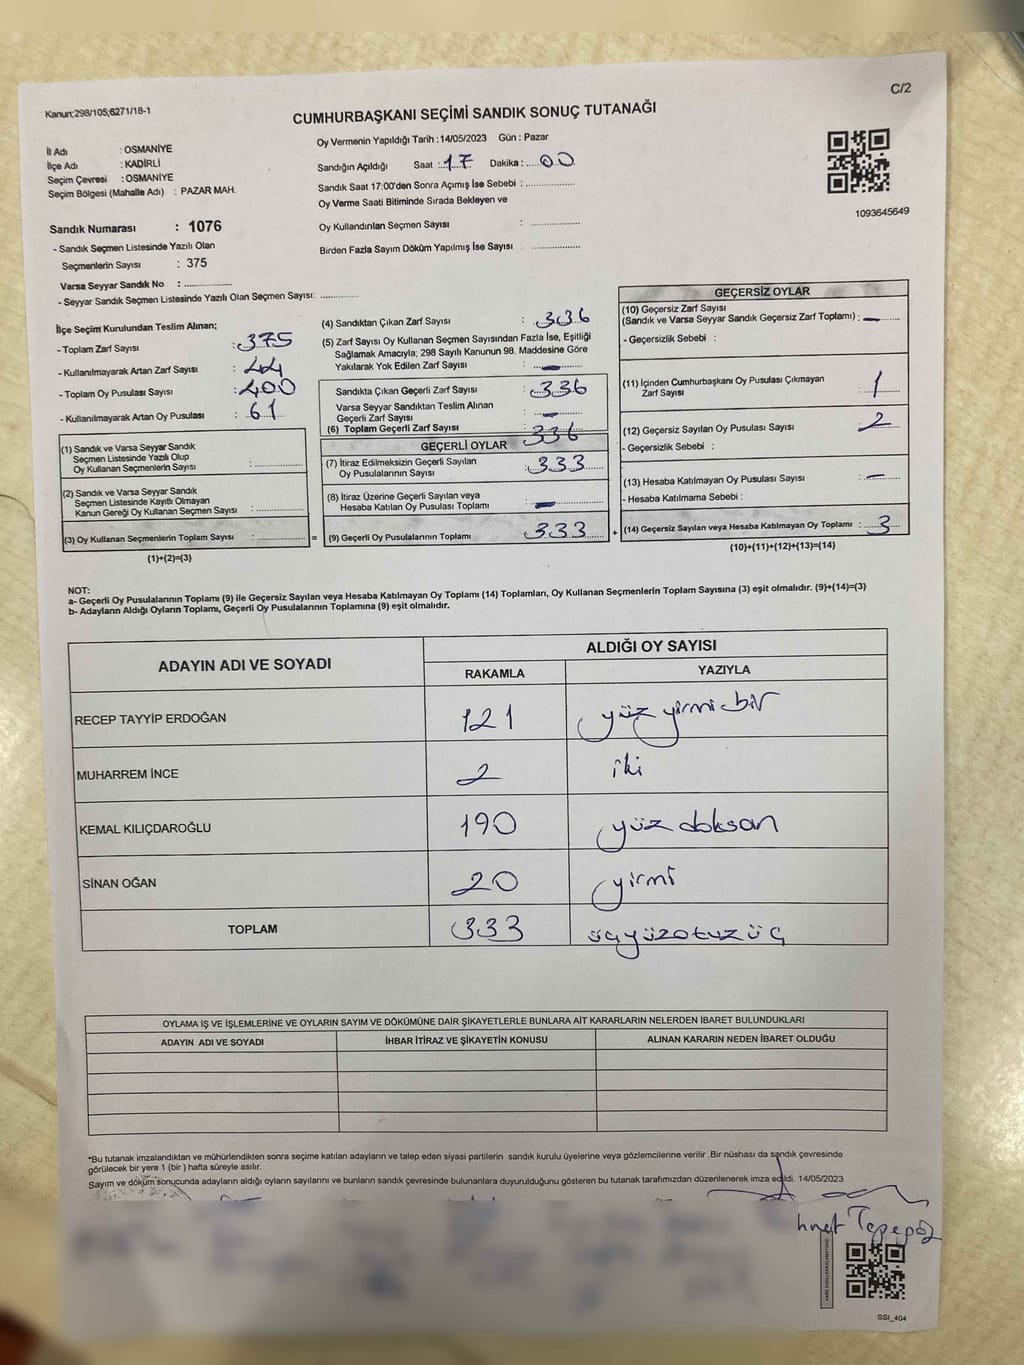 C/2
Kanun;298/105;6271/18-1
CUMHURBAŞKANI SEÇİMİ SANDIK SONUÇ TUTANAĞI
İl Adı : OSMANİYE
İlçe Adı : KADİRLİ
Seçim Çevresi : OSMANİYE
Seçim Bölgesi (Mahalle Adı) : PAZAR MAH.
Oy Vermenin Yapıldığı Tarih : 14/05/2023 Gün : Pazar
Sandığın Açıldığı Saat : 17 Dakika : 00
Sandık Saat 17:00'den Sonra Açımış İse Sebebi :
Oy Verme Saati Bitiminde Sırada Bekleyen ve
Oy Kullandırılan Seçmen Sayısı :
Birden Fazla Sayım Döküm Yapılmış İse Sayısı :
1093645649
Sandık Numarası : 1076
- Sandık Seçmen Listesinde Yazılı Olan
Seçmenlerin Sayısı : 375
Varsa Seyyar Sandık No :
- Seyyar Sandık Seçmen Listesinde Yazılı Olan Seçmen Sayısı:
İlçe Seçim Kurulundan Teslim Alınan;
- Toplam Zarf Sayısı : 375
- Kullanılmayarak Artan Zarf Sayısı : 44
- Toplam Oy Pusulası Sayısı : 400
- Kullanılmayarak Artan Oy Pusulası : 61
(1) Sandık ve Varsa Seyyar Sandık
Seçmen Listesinde Yazılı Olup
Oy Kullanan Seçmenlerin Sayısı :
(2) Sandık ve Varsa Seyyar Sandık
Seçmen Listesinde Kayıtlı Olmayan
Kanun Gereği Oy Kullanan Seçmen Sayısı :
(3) Oy Kullanan Seçmenlerin Toplam Sayısı :
(1)+(2)=(3)
(4) Sandıktan Çıkan Zarf Sayısı : 336
(5) Zarf Sayısı Oy Kullanan Seçmen Sayısından Fazla İse, Eşitliği
Sağlamak Amacıyla; 298 Sayılı Kanunun 98. Maddesine Göre
Yakılarak Yok Edilen Zarf Sayısı : -
Sandıkta Çıkan Geçerli Zarf Sayısı : 336
Varsa Seyyar Sandıktan Teslim Alınan
Geçerli Zarf Sayısı : -
(6) Toplam Geçerli Zarf Sayısı : 336
GEÇERLİ OYLAR
(7) İtiraz Edilmeksizin Geçerli Sayılan
Oy Pusulalarının Sayısı : 333
(8) İtiraz Üzerine Geçerli Sayılan veya
Hesaba Katılan Oy Pusulası Toplamı : -
= (9) Geçerli Oy Pusulalarının Toplamı : 333 +
GEÇERSİZ OYLAR
(10) Geçersiz Zarf Sayısı
(Sandık ve Varsa Seyyar Sandık Geçersiz Zarf Toplamı) : -
- Geçersizlik Sebebi :
(11) İçinden Cumhurbaşkanı Oy Pusulası Çıkmayan
Zarf Sayısı : 1
(12) Geçersiz Sayılan Oy Pusulası Sayısı : 2
- Geçersizlik Sebebi :
(13) Hesaba Katılmayan Oy Pusulası Sayısı : -
- Hesaba Katılmama Sebebi :
(14) Geçersiz Sayılan veya Hesaba Katılmayan Oy Toplamı : 3
(10)+(11)+(12)+(13)=(14)
NOT:
a- Geçerli Oy Pusulalarının Toplamı (9) ile Geçersiz Sayılan veya Hesaba Katılmayan Oy Toplamı (14) Toplamları, Oy Kullanan Seçmenlerin Toplam Sayısına (3) eşit olmalıdır. (9)+(14)=(3)
b- Adayların Aldığı Oyların Toplamı, Geçerli Oy Pusulalarının Toplamına (9) eşit olmalıdır.
ADAYIN ADI VE SOYADI ALDIĞI OY SAYISI
RAKAMLA YAZIYLA
RECEP TAYYİP ERDOĞAN 121 yüz yirmi bir
MUHARREM İNCE 2 iki
KEMAL KILIÇDAROĞLU 190 yüz doksan
SİNAN OĞAN 20 yirmi
TOPLAM 333 üçyüzotuzüç
OYLAMA İŞ VE İŞLEMLERİNE VE OYLARIN SAYIM VE DÖKÜMÜNE DAİR ŞİKAYETLERLE BUNLARA AİT KARARLARIN NELERDEN İBARET BULUNDUKLARI
ADAYIN ADI VE SOYADI İHBAR İTİRAZ VE ŞİKAYETİN KONUSU ALINAN KARARIN NEDEN İBARET OLDUĞU
*Bu tutanak imzalandıktan ve mühürlendikten sonra seçime katılan adayların ve talep eden siyasi partilerin sandık kurulu üyelerine veya gözlemcilerine verilir .Bir nüshası da sandık çevresinde
görülecek bir yere 1 (bir ) hafta süreyle asılır.
Sayım ve döküm sonucunda adayların aldığı oyların sayılarını ve bunların sandık çevresinde bulunanlara duyurulduğunu gösteren bu tutanak tarafımızdan düzenlenerek imza edildi. 14/05/2023
SSI_404